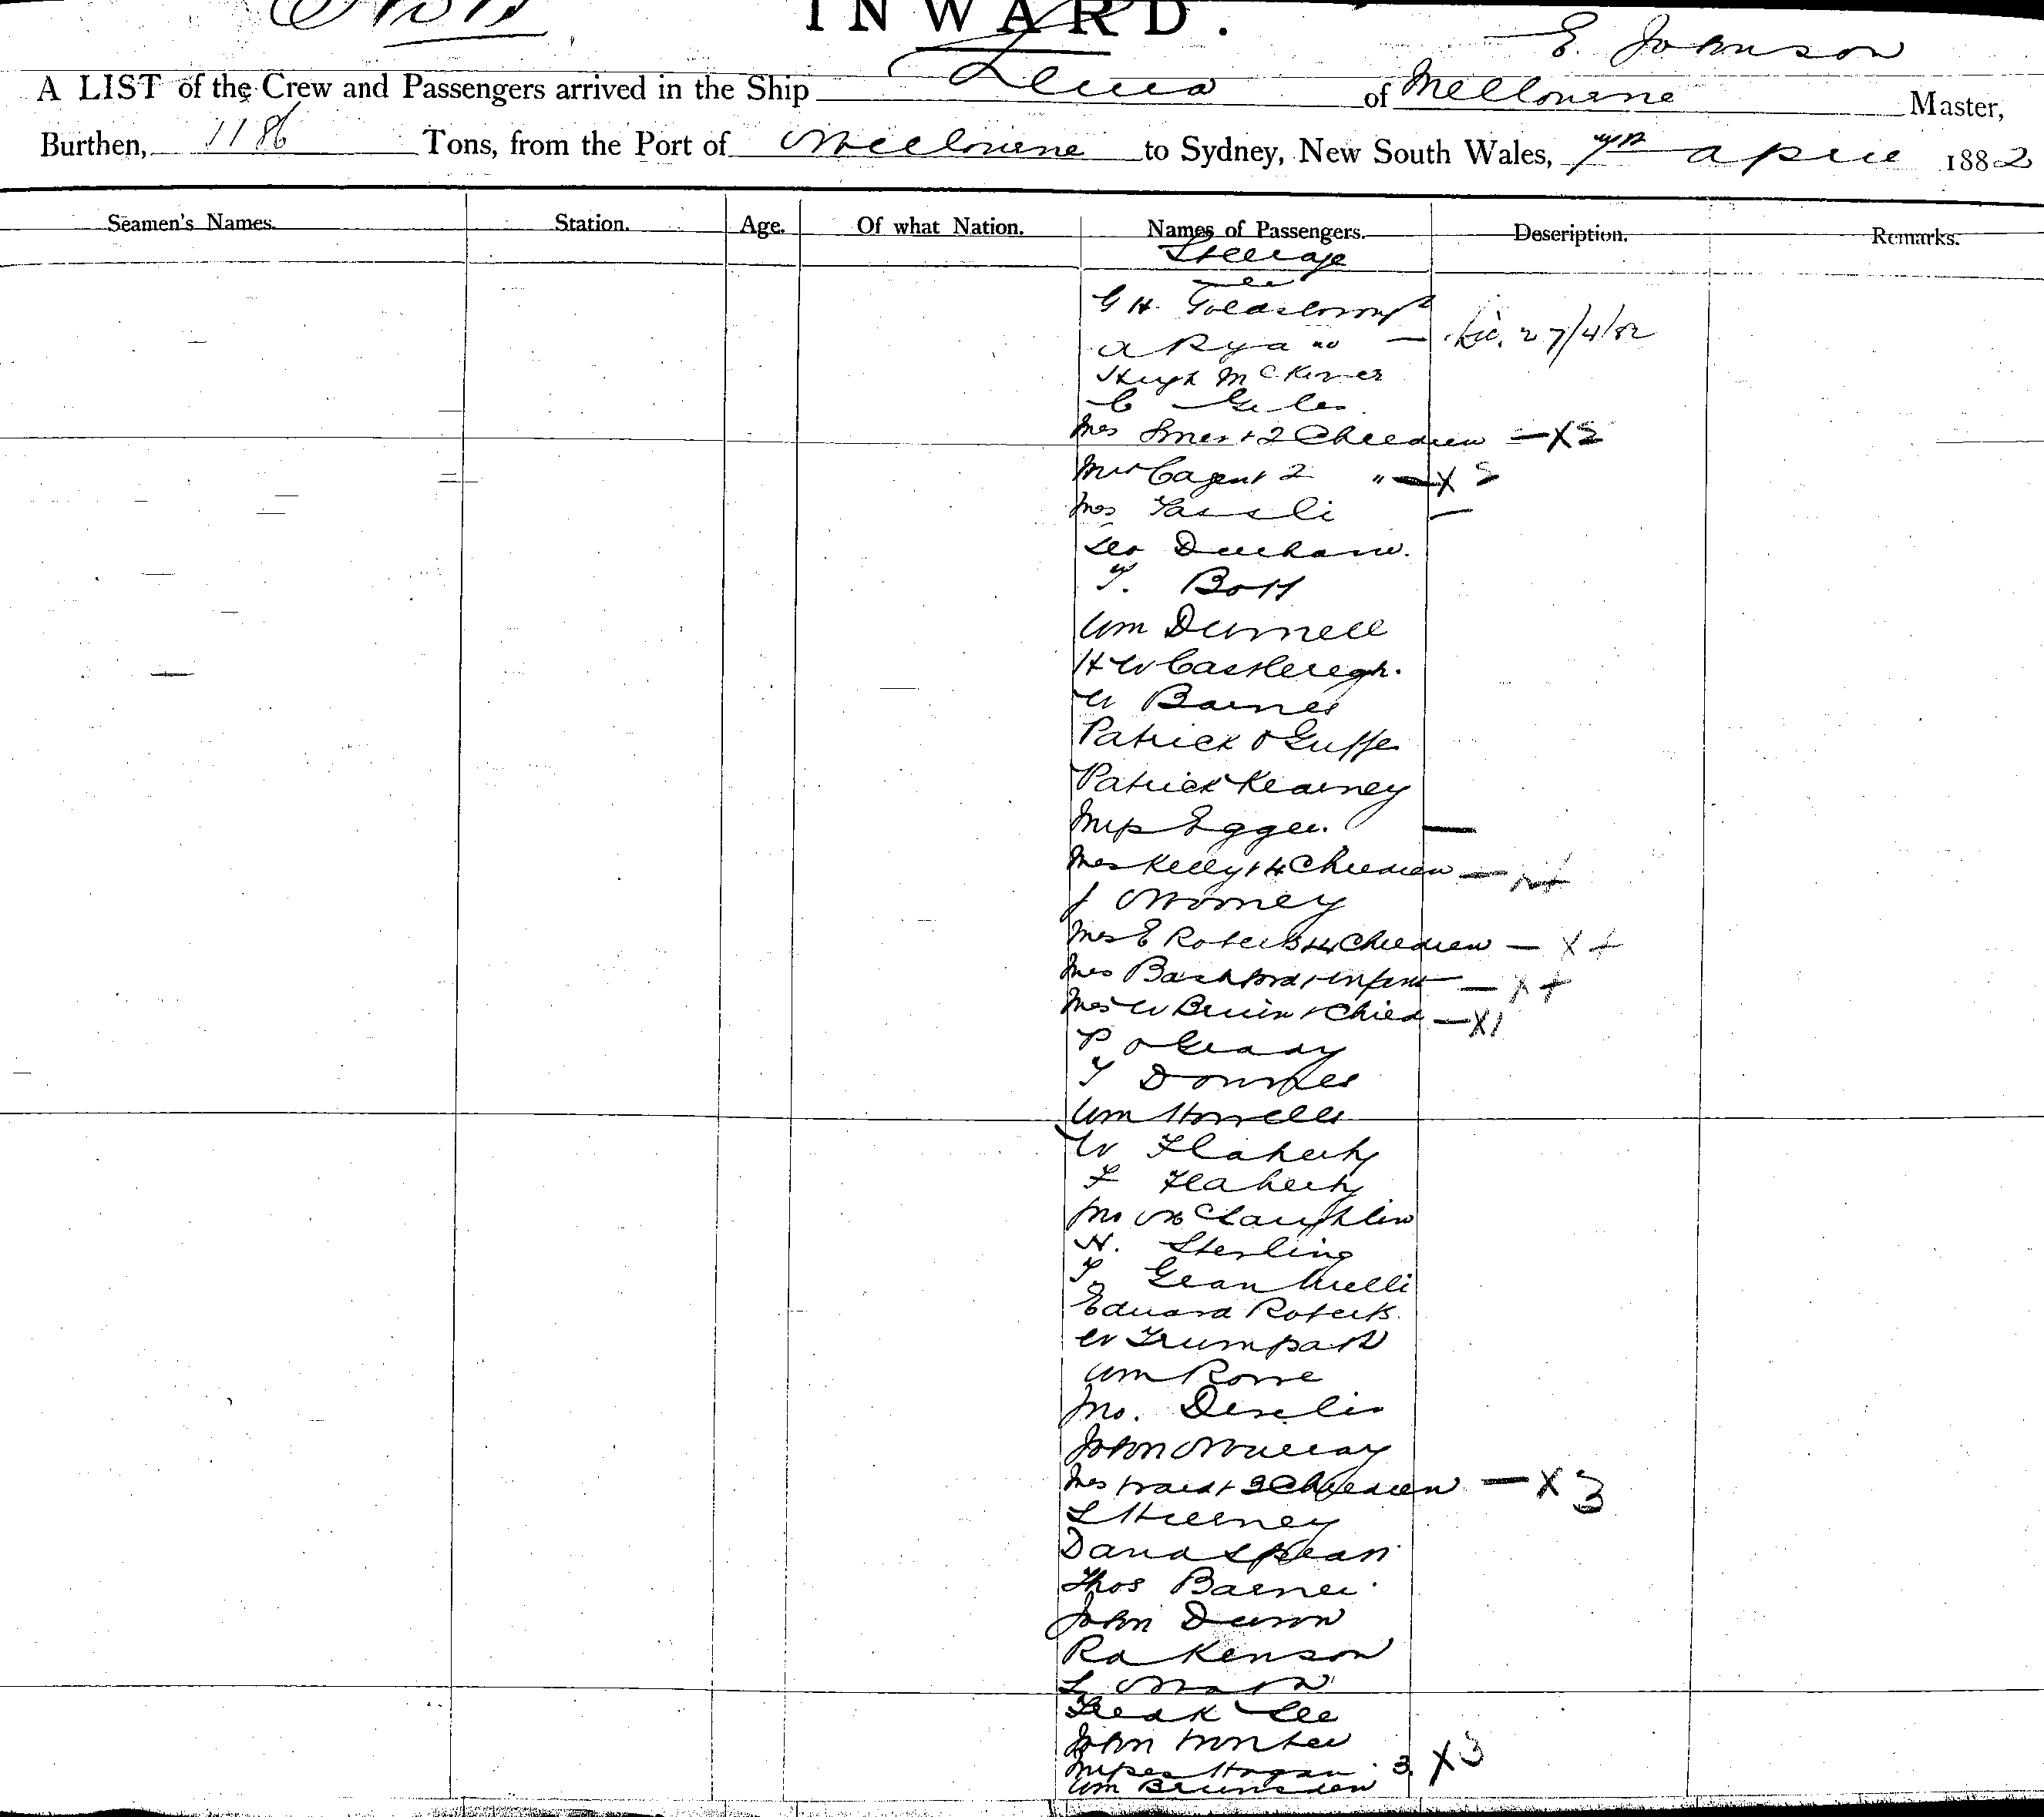 INWARD.
E. Johnson
A LIST of the Crew and Passengers arrived in the Ship of Melbourne Master,
Burthen, 1186 Tons, from the Port of Melbourne to Sydney, New South Wales, 7th April 1882
Seamen's Names. Station. Age. Of what Nation. Names of Passengers. Description. Remarks.
Steerage
G H. Goldsborough
A Ryan — 27/4/82
Hugh McKiver
C Giles
Mrs + 2 Children — X 2
Mrs + 2 " — X 2
Mrs —
Geo Durham.
T. Bott
Wm Durnell
H W Castleregh.
W Barnes
Patrick O Guffe
Patrick Kearney
Miss Egger. —
Mrs Kelly + 4 Children —
J Morney
Mrs E Roberts + 4 Children — X 4
Mrs Bashford + Infant — X +
Mrs W Bruin + Child — X 1
P O Grady
T Downes
Wm Howells
W Flaherty
F Flaherty
Jno McClaughlin
H. Sterling
T. Gean
Edward Roberts
W Trumpath
Wm Rowe
Jno.
John Murray
Mrs + 3 Children — X 3
L Heeney
David Spean
Thos Barner
John Dunn
Rd Kenson
L
Fredk Lee
John Hunter
Misses Hogan 3. X 3
Wm Brunsden